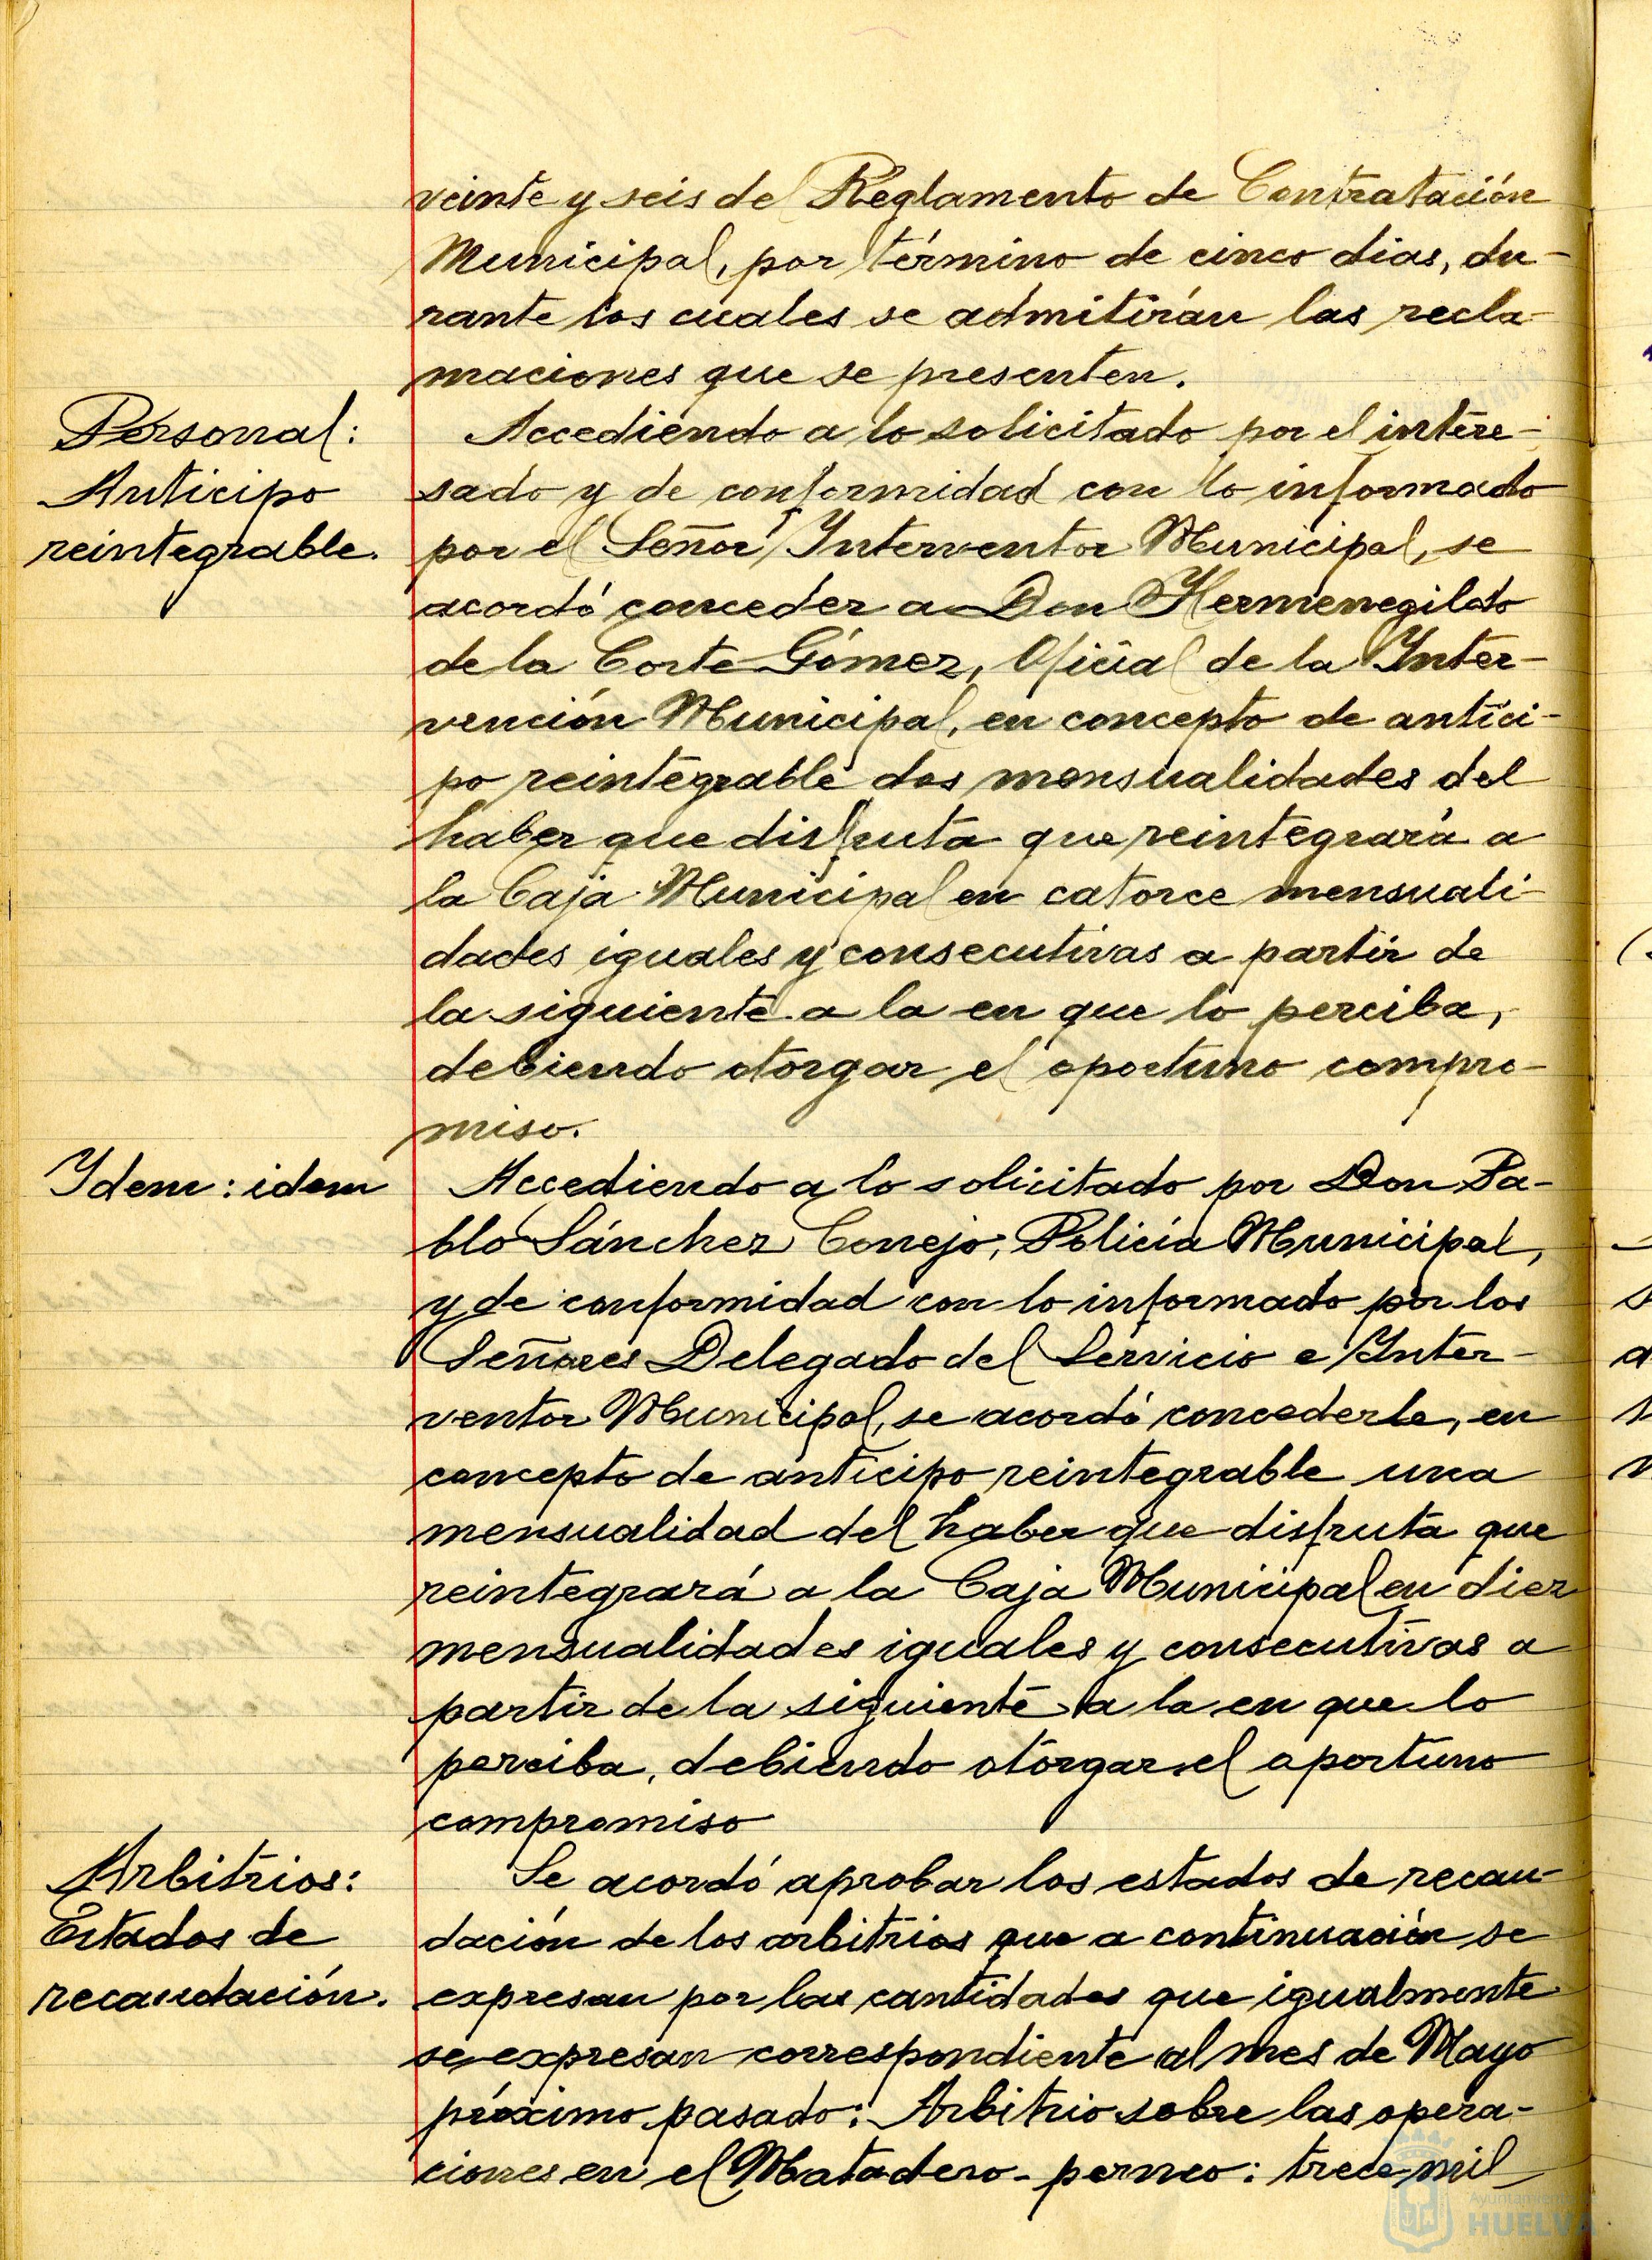 veinte y seis del Reglamento de Contratación
Municipal, por término de cinco dias, du-
rante los cuales se admitirán las recla-
maciones que se presenten.
Personal:
Anticipo
reintegrable.
Accediendo a lo solicitado por el intere-
sado y de conformidad con lo informado
por el Señor Interventor Municipal, se
acordó conceder a Don Hermenegildo
de la Corte Gómez, Oficial de la Inter-
vención Municipal, en concepto de antici-
po reintegrable dos mensualidades del
haber que disfruta que reintegrará a
la Caja Municipal en catorce mensuali-
dades iguales y consecutivas a partir de
la siguiente a la en que lo perciba,
debiendo otorgar el oportuno compro-
miso.
Ydem: idem
Accediendo a lo solicitado por Don Pa-
blo Sánchez Conejo, Policía Municipal,
y de conformidad con lo informado por los
Señores Delegado del Servicio e Inter-
ventor Municipal, se acordó concederle, en
concepto de anticipo reintegrable una
mensualidad del haber que disfruta que
reintegrará a la Caja Municipal en diez
mensualidades iguales y consecutivas a
partir de la siguiente a la en que lo
perciba, debiendo otorgar el oportuno
compromiso
Arbitrios:
Estados de
recaudación.
Se acordó aprobar los estados de recau-
dación de los arbitrios que a continuación se
expresan por las cantidades que igualmente
se expresan correspondiente al mes de Mayo
próximo pasado: Arbitrio sobre las opera-
ciones en el Matadero-perneo: trece mil
Ayuntamiento de
HUELVA